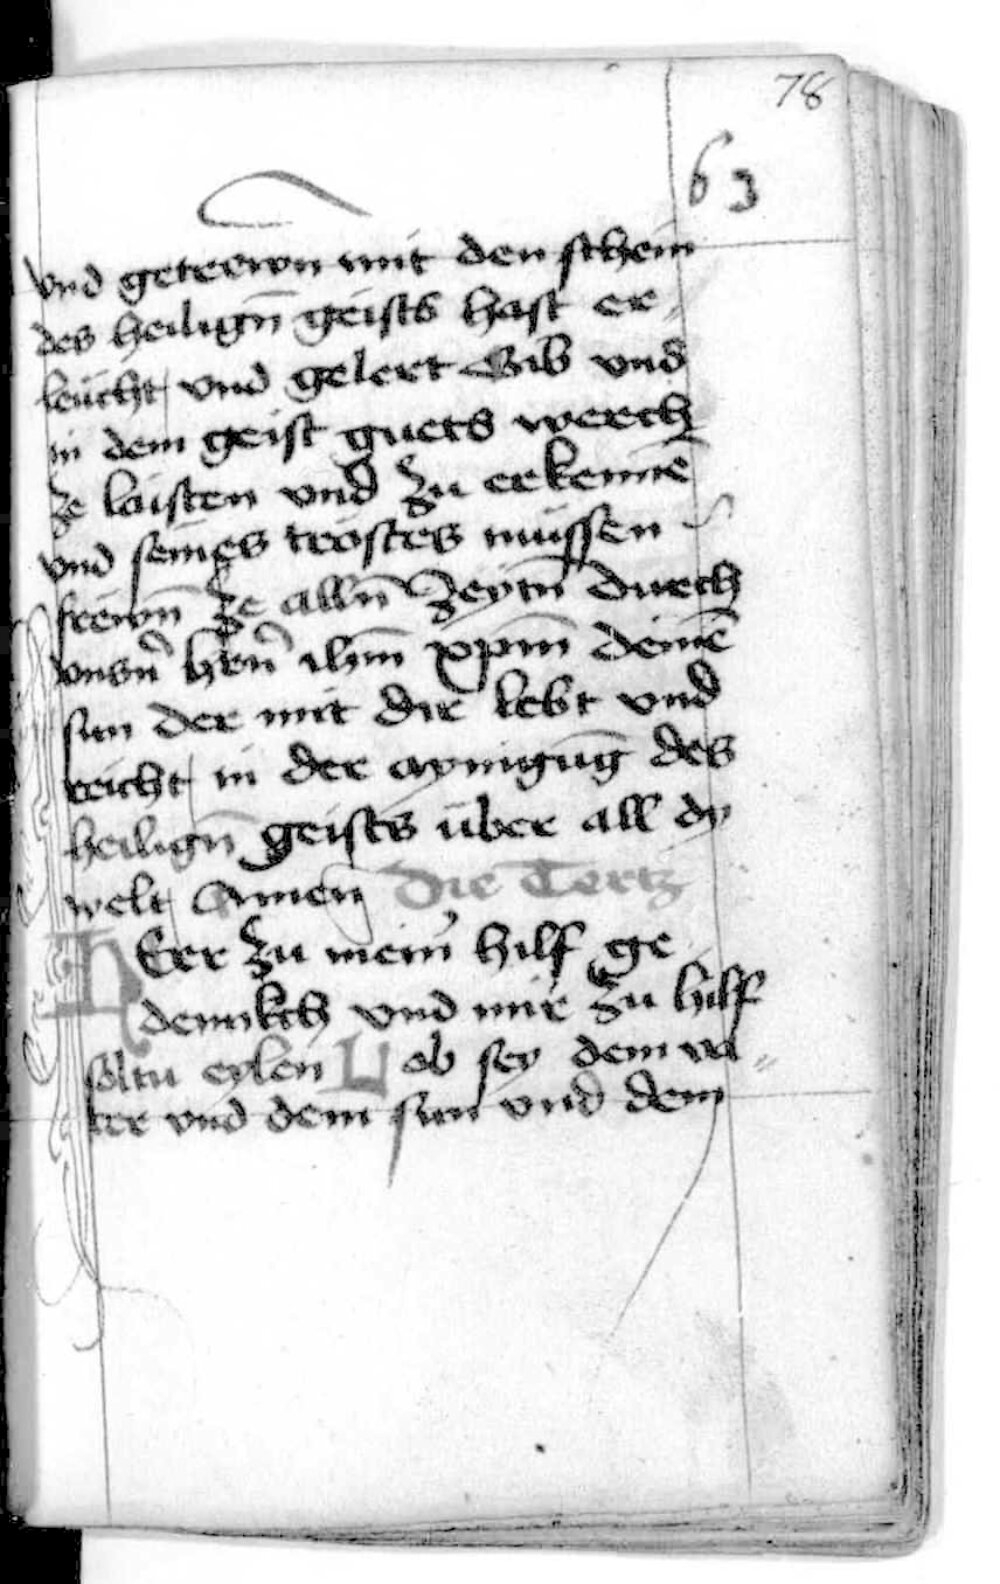 78
63
vnd getrewn mit den schein
des heilign̄ geists hast er„
leücht vnd gelert Gib vnd
in dem geist guets werch
ze laisten vnd zu erkennē
vnd seines tröstes müssen
frewn̄ ze alln̄ Zeytn̄ durch
vnsn̄ hrn̄ ihm̄ xpm̄ deinē
sun der mit dir lebt vnd
reicht in der aynigūg des
heilign̄ geists über all dy
welt Amen Die Tertz
HErr zu mein̄ hilf ge
dennkch vnd mir zu hilff
soltu eylen Lob sey dem va„
ter vnd dem̄ sun vnd dem